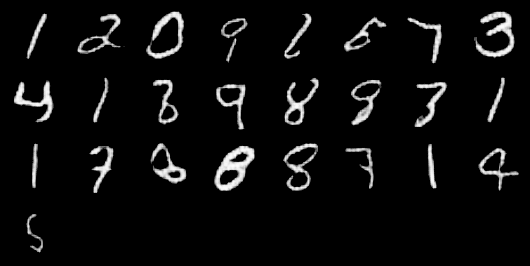 1 2 0 9 2 5 7 3
4 1 3 9 8 8 3 1
1 7 8 8 7 1 4
5